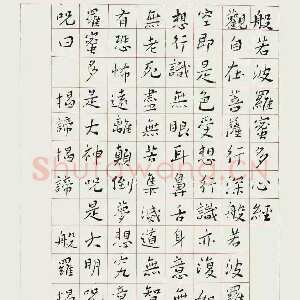 般若波羅蜜多心經
觀自在菩薩行深般若波羅
空即是色受想行識亦復如
想行識無眼耳鼻舌身意無
無老死盡無苦集滅道無智
有恐怖遠離顛倒夢想究竟
羅蜜多是大神呪是大明呪
呪曰 揭諦揭諦 般羅揭